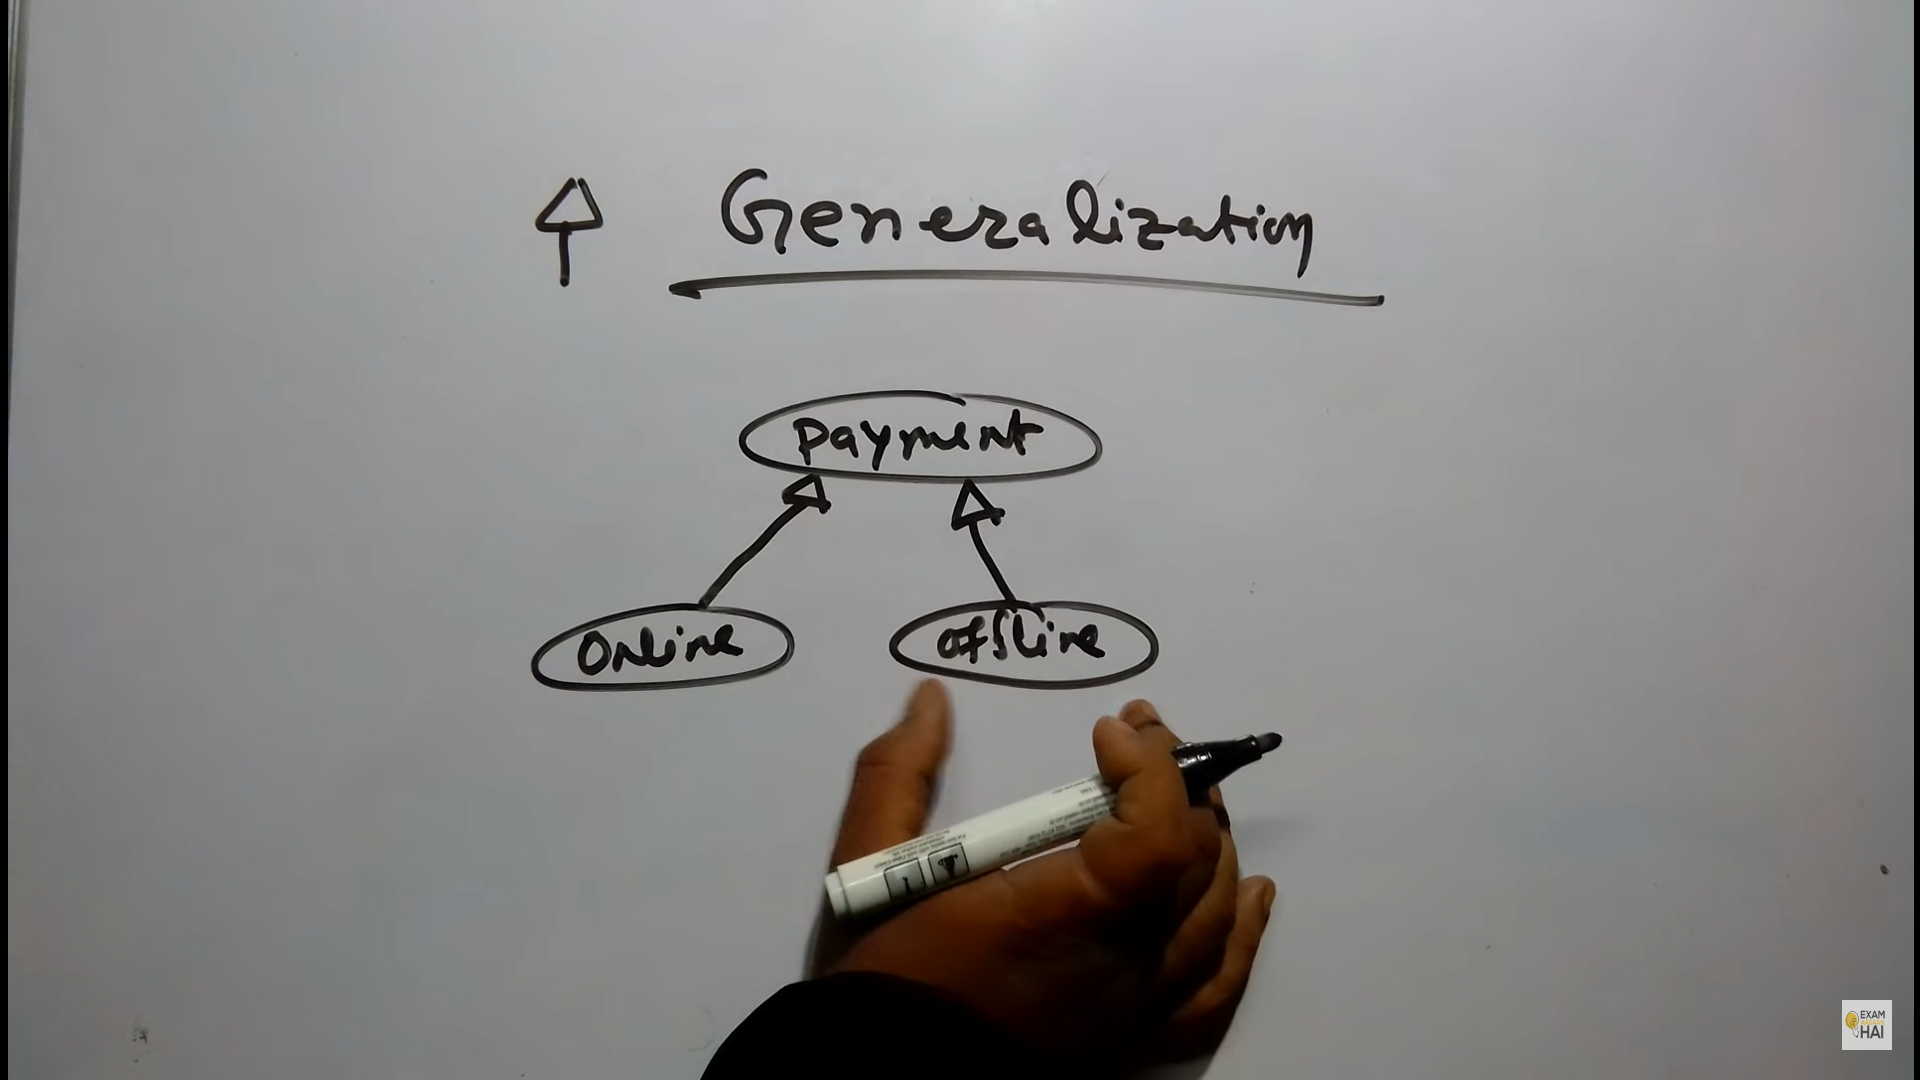 Generalization
payment
Online
offline
EXAM
HAI